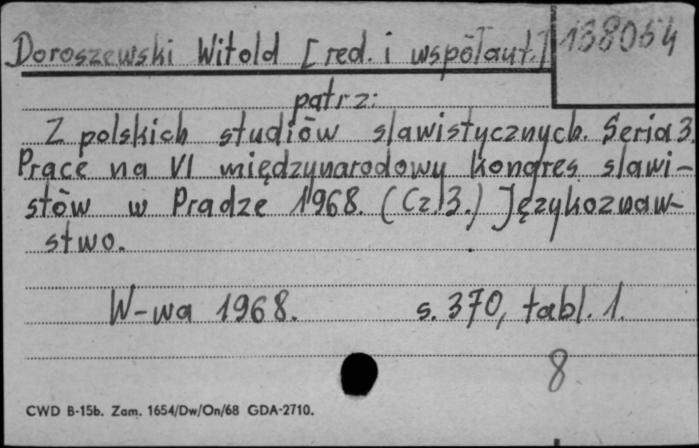 Doroszewski Witold [red. i współaut.]
138054
patrz:
Z polskich studiów slawistycznych. Seria 3.
Prace na VI międzynarodowy kongres slawi-
stów w Pradze 1968. (Cz. 3.) Językoznaw-
stwo.
W-wa 1968. s. 370, tabl. 1.
8
CWD B-15b. Zam. 1654/Dw/On/68 GDA-2710.